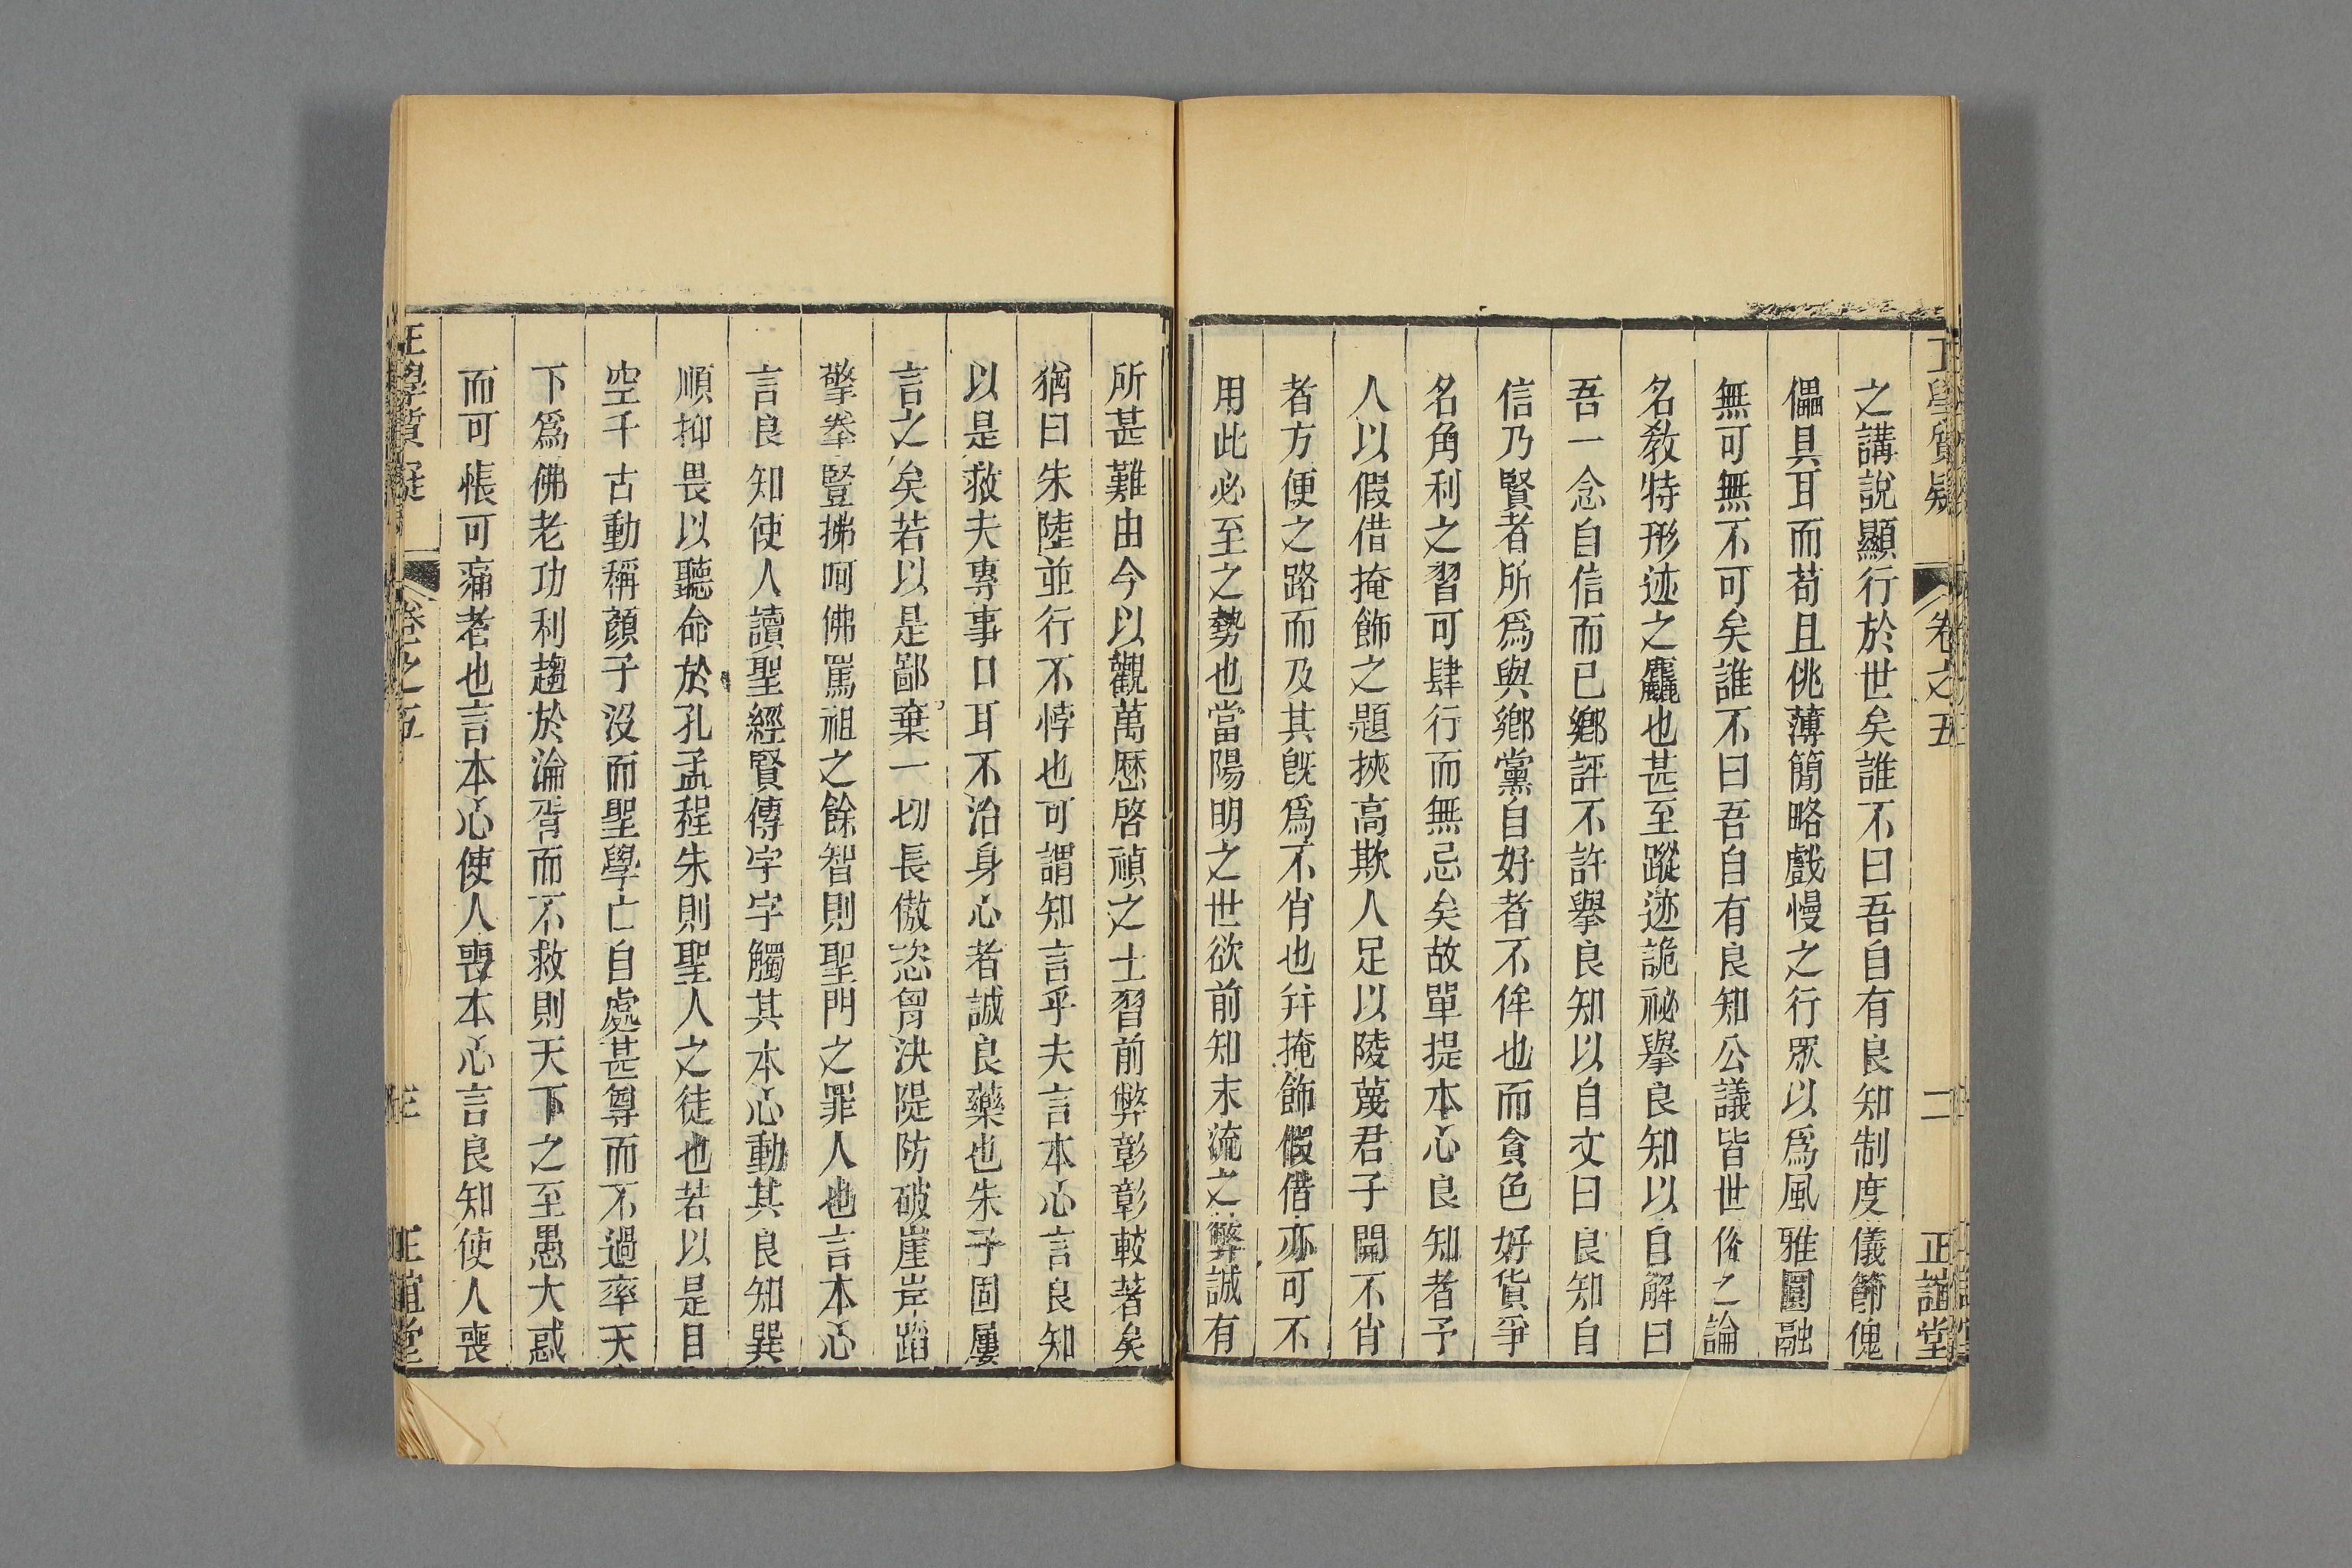 王學質疑 卷之五 二 正誼堂
之講說顯行於世矣誰不曰吾自有良知制度儀節傀
儡具耳而苟且佻薄簡略戲慢之行眾以爲風雅圓融
無可無不可矣誰不曰吾自有良知公議皆世俗之論
名教特形迹之麤也甚至蹤迹詭祕擧良知以自解曰
吾一念自信而已鄉評不許擧良知以自文曰良知自
信乃賢者所爲與鄉黨自好者不侔也而貪色好貨爭
名角利之習可肆行而無忌矣故單提本心良知者予
人以假借掩飾之題挾高欺人足以陵蔑君子開不肖
者方便之路而及其旣爲不肖也幷掩飾假借亦可不
用此必至之勢也當陽明之世欲前知末流之弊誠有
所甚難由今以觀萬歷啓禎之士習前弊彰彰較著矣
猶曰朱陸並行不悖也可謂知言乎夫言本心言良知
以是救夫專事口耳不治身心者誠良藥也朱子固屢
言之矣若以是鄙棄一切長傲恣胷決隄防破崖岸蹈
擎拳豎拂呵佛罵祖之餘智則聖門之罪人也言本心
言良知使人讀聖經賢傳字字觸其本心動其良知巽
順抑畏以聽命於孔孟程朱則聖人之徒也若以是目
空千古動稱顔子沒而聖學亡自處甚尊而不過率天
下爲佛老功利趨於淪胥而不救則天下之至愚大惑
而可悵可痛者也言本心使人喪本心言良知使人喪
王學質疑 卷之五 三 正誼堂